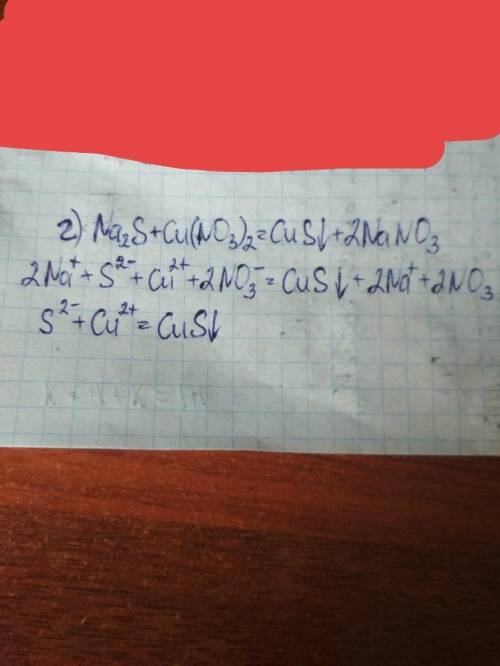 2) Na₂S+Cu(NO₃)₂=CuS↓+2NaNO₃
2Na⁺+S²⁻+Cu²⁺+2NO₃⁻=CuS↓+2Na⁺+2NO₃
S²⁻+Cu²⁺=CuS↓